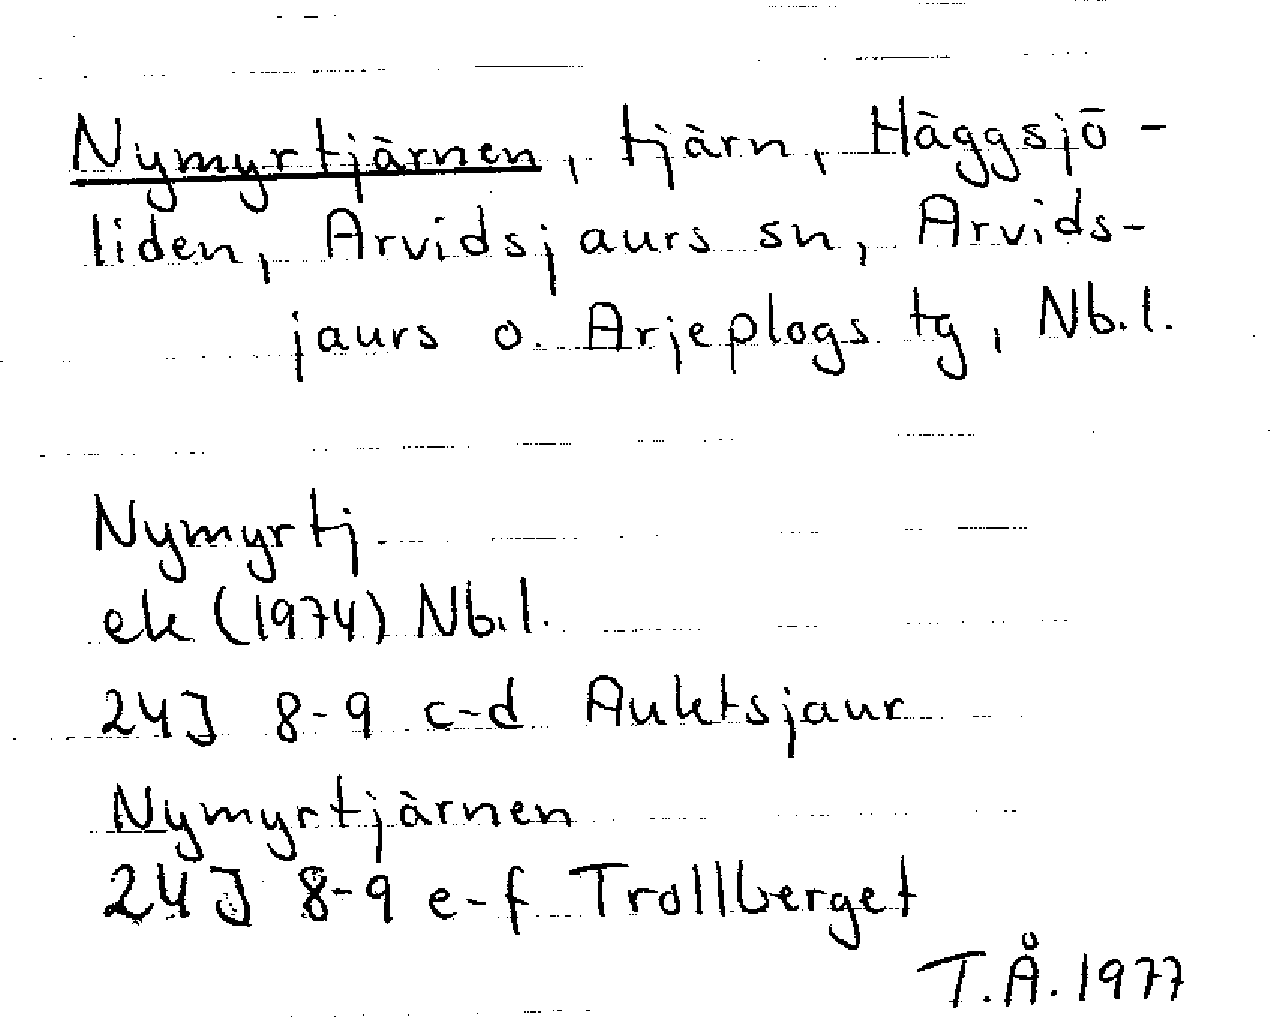 Nymyrtjärnen, tjärn, Häggsjö-
liden, Arvidsjaurs sn, Arvids-
jaurs o. Arjeplogs tg, Nb.l.
Nymyrtj.
ek (1974) Nb.l.
24J 8-9 c-d Auktsjaur
Nymyrtjärnen
24J 8-9 e-f Trollberget
T.Å. 1977